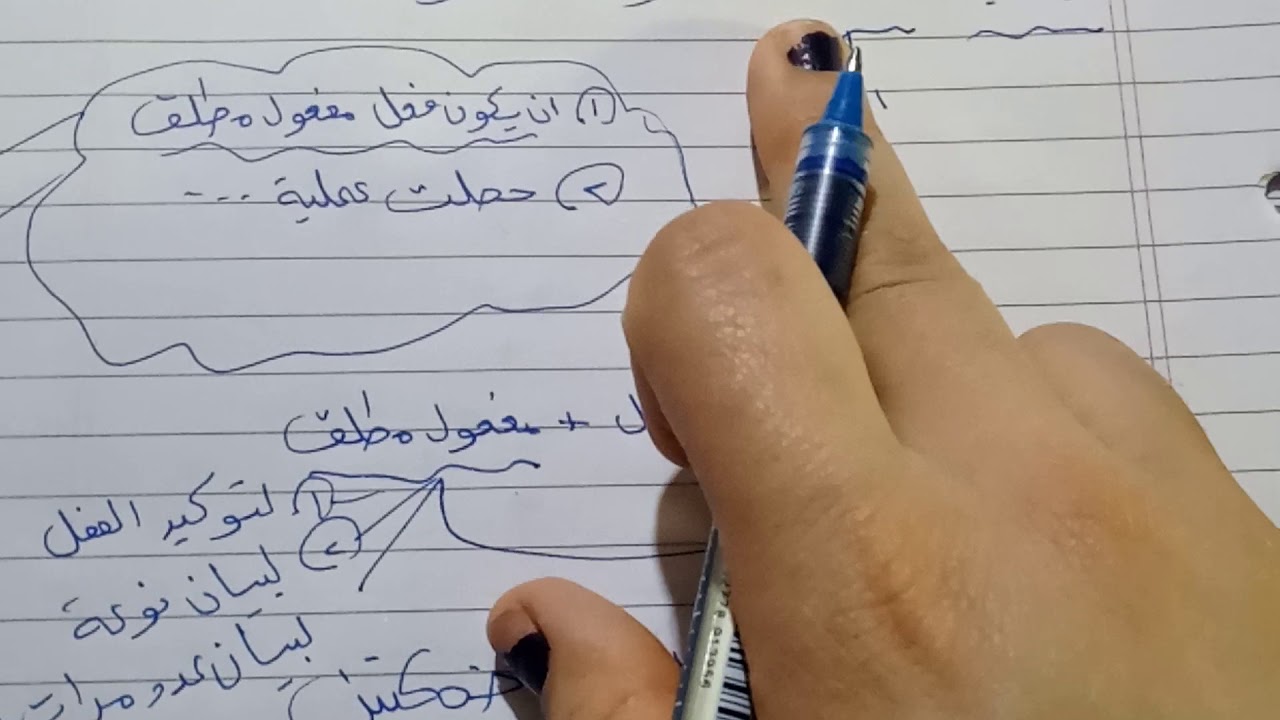 ١ ان يكون فعل مفعول مطلق
٢ حصلت عملية ...
ل + مفعول مطلق
١ لتوكيد الفعل
٢ لبيان نوعة
لبيان عدد مرات